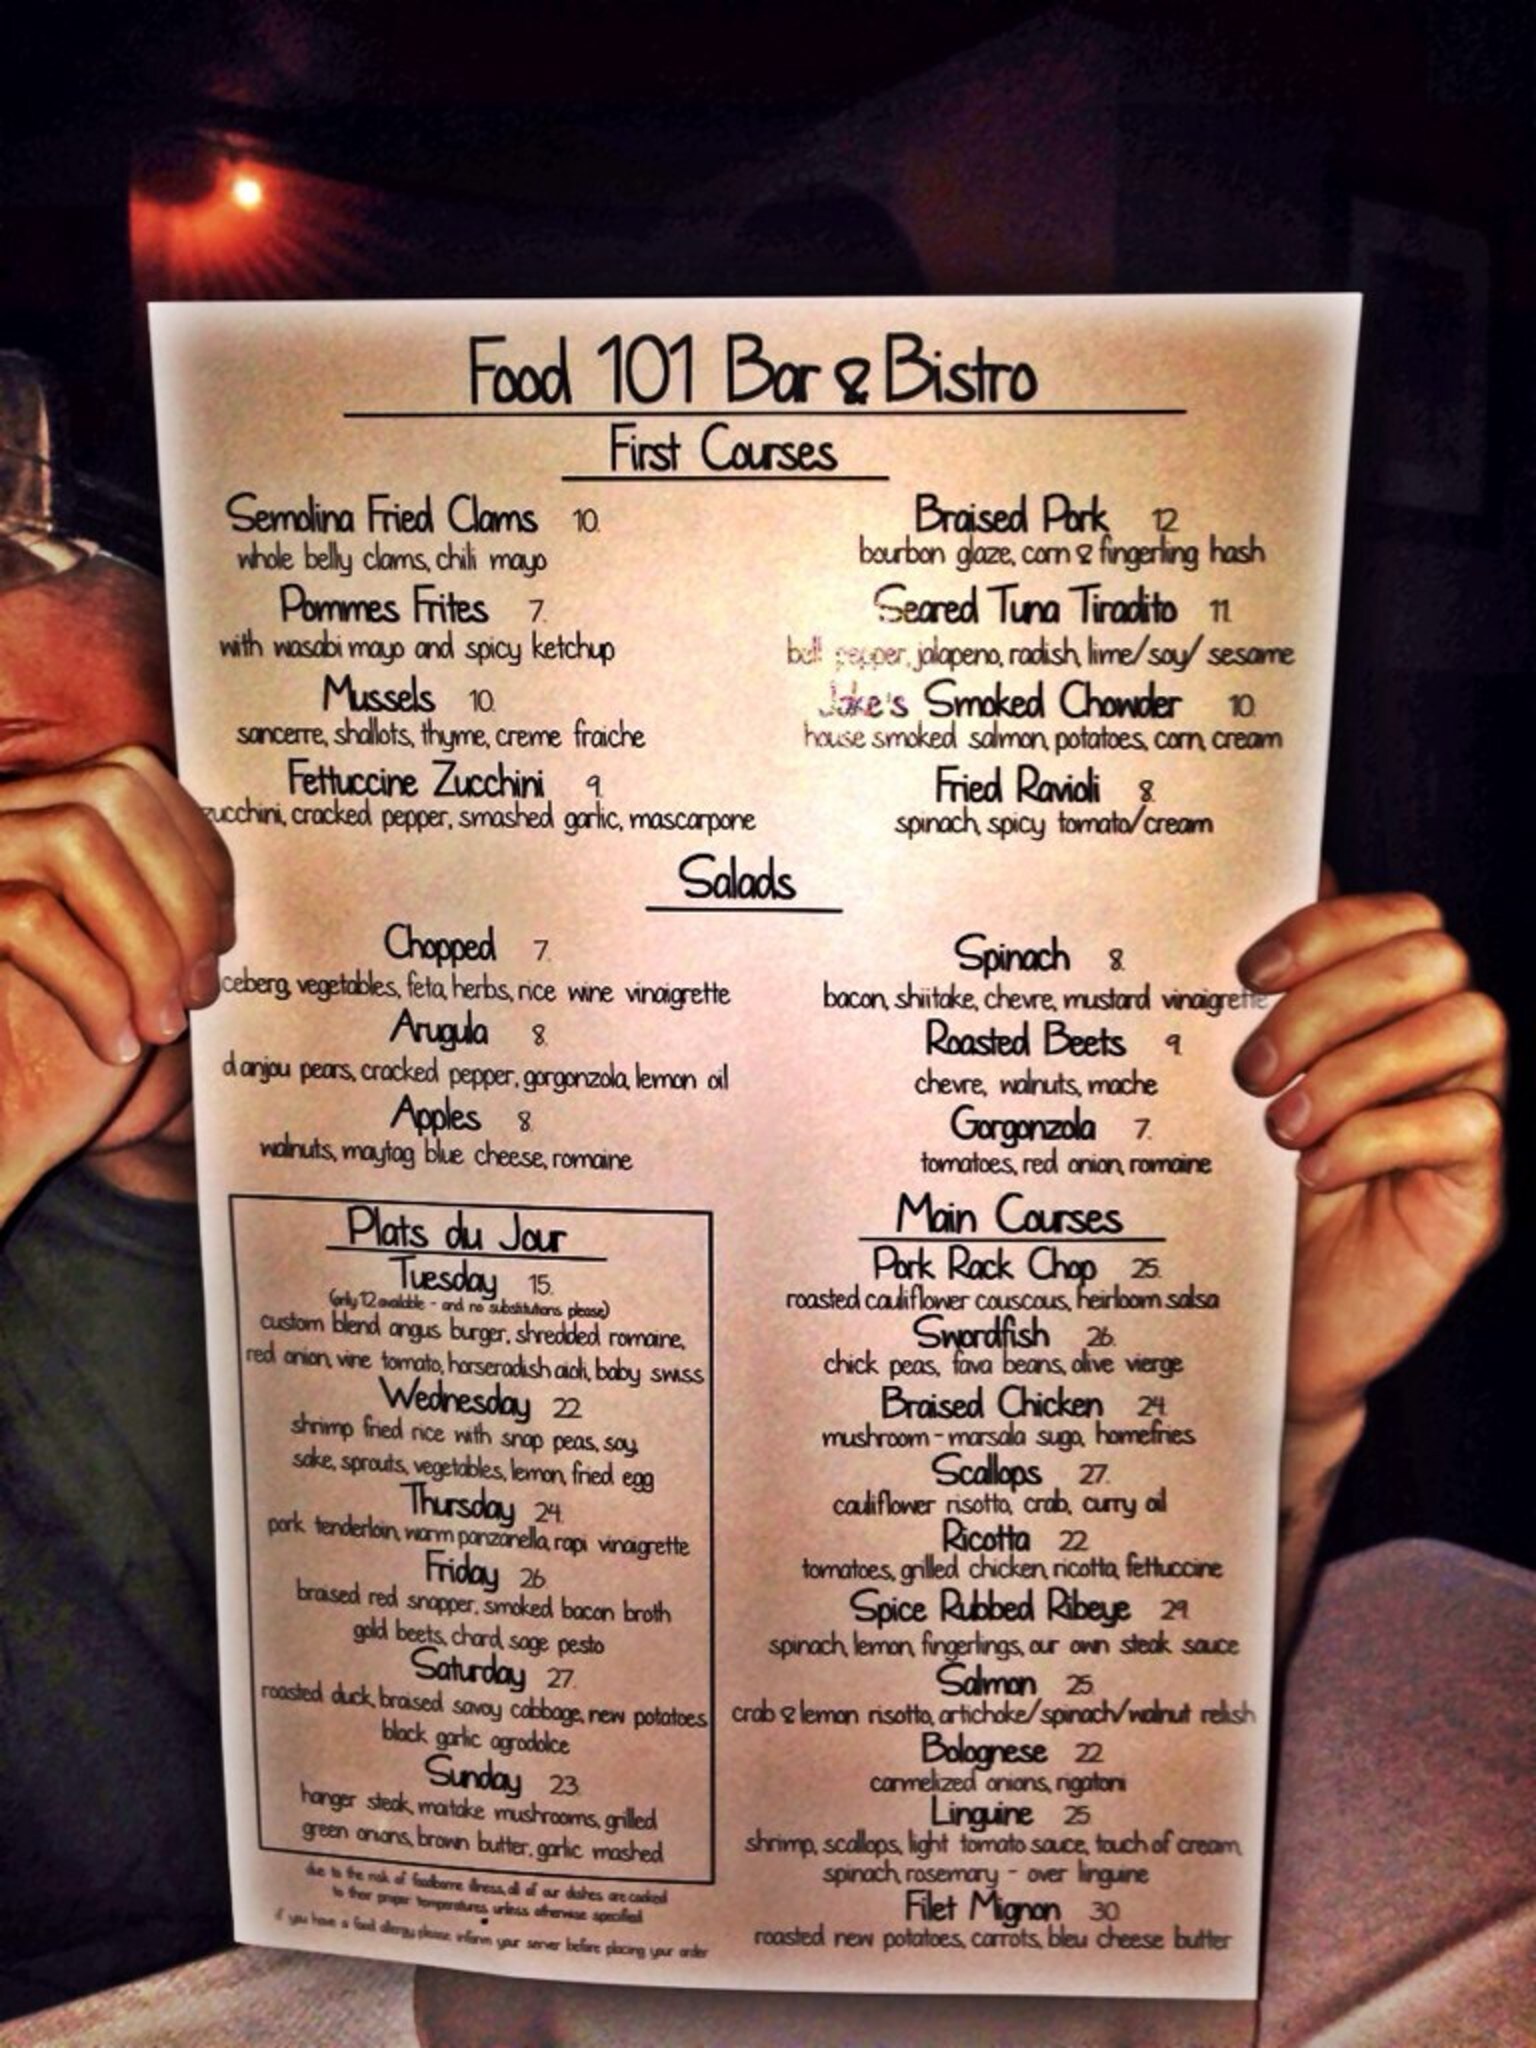 Food 101 Bar & Bistro
First Courses
Semolina Fried Clams 10.
whole belly clams, chili mayo
Pommes Frites 7.
with wasabi mayo and spicy ketchup
Mussels 10.
sancerre, shallots, thyme, creme fraiche
Fettuccine Zucchini 9.
zucchini, cracked pepper, smashed garlic, mascarpone
Braised Pork 12
bourbon glaze, corn & fingerling hash
Seared Tuna Tiradito 11.
bell pepper, jalapeno, radish, lime/soy/ sesame
Jake's Smoked Chowder 10.
house smoked salmon, potatoes, corn, cream
Fried Ravioli 8.
spinach, spicy tomato/cream
Salads
Chopped 7.
iceberg, vegetables, feta, herbs, rice wine vinaigrette
Arugula 8.
d anjou pears, cracked pepper, gorgonzola, lemon oil
Apples 8.
walnuts, maytag blue cheese, romaine
Spinach 8.
bacon, shiitake, chevre, mustard vinaigrette
Roasted Beets 9.
chevre, walnuts, mache
Gorgonzola 7.
tomatoes, red onion, romaine
Plats du Jour
Tuesday 15.
(only 12 available - and no substitutions please)
custom blend angus burger, shredded romaine,
red onion, vine tomato, horseradish aioli, baby swiss
Wednesday 22
shrimp fried rice with snap peas, soy,
sake, sprouts, vegetables, lemon, fried egg
Thursday 24.
pork tenderloin, warm panzanella, rapi vinaigrette
Friday 26.
braised red snapper, smoked bacon broth
gold beets, chard, sage pesto
Saturday 27.
roasted duck, braised savoy cabbage, new potatoes
black garlic agrodolce
Sunday 23.
hanger steak, maitake mushrooms, grilled
green onions, brown butter, garlic mashed
due to the risk of foodborne illness, all of our dishes are cooked
to their proper temperatures unless otherwise specified
if you have a food allergy please inform your server before placing your order
Main Courses
Pork Rack Chop 25.
roasted cauliflower couscous, heirloom salsa
Swordfish 26.
chick peas, fava beans, olive vierge
Braised Chicken 24.
mushroom-marsala sugo, homefries
Scallops 27.
cauliflower risotto, crab, curry oil
Ricotta 22
tomatoes, grilled chicken, ricotta, fettuccine
Spice Rubbed Ribeye 29.
spinach, lemon, fingerlings, our own steak sauce
Salmon 25.
crab & lemon risotto, artichoke/spinach/walnut relish
Bolognese 22
carmelized onions, rigatoni
Linguine 25
shrimp, scallops, light tomato sauce, touch of cream,
spinach, rosemary - over linguine
Filet Mignon 30.
roasted new potatoes, carrots, bleu cheese butter